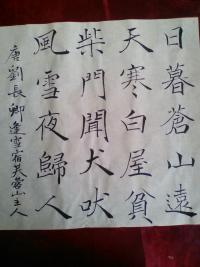 日暮蒼山遠
天寒白屋貧
柴門聞犬吠
風雪夜歸人
唐劉長卿逢雪宿芙蓉山主人